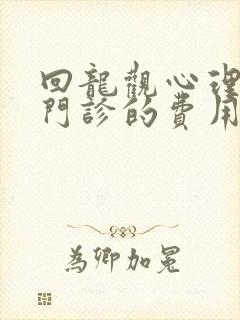 回龍觀心理
門診的費用
為卿加冕